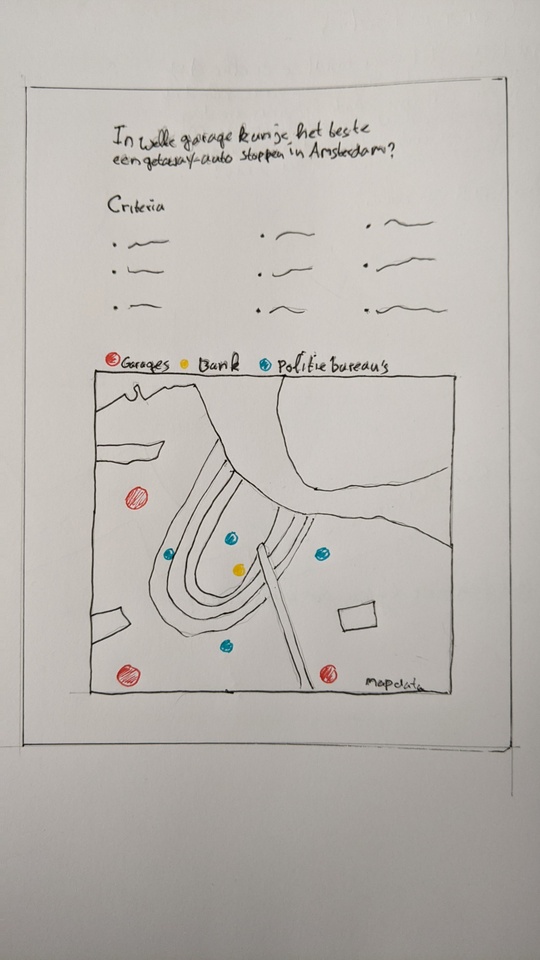 In welke garage kun je het beste
een getaway-auto stoppen in Amsterdam?
Criteria
Garages Bank Politiebureau's
mapdata